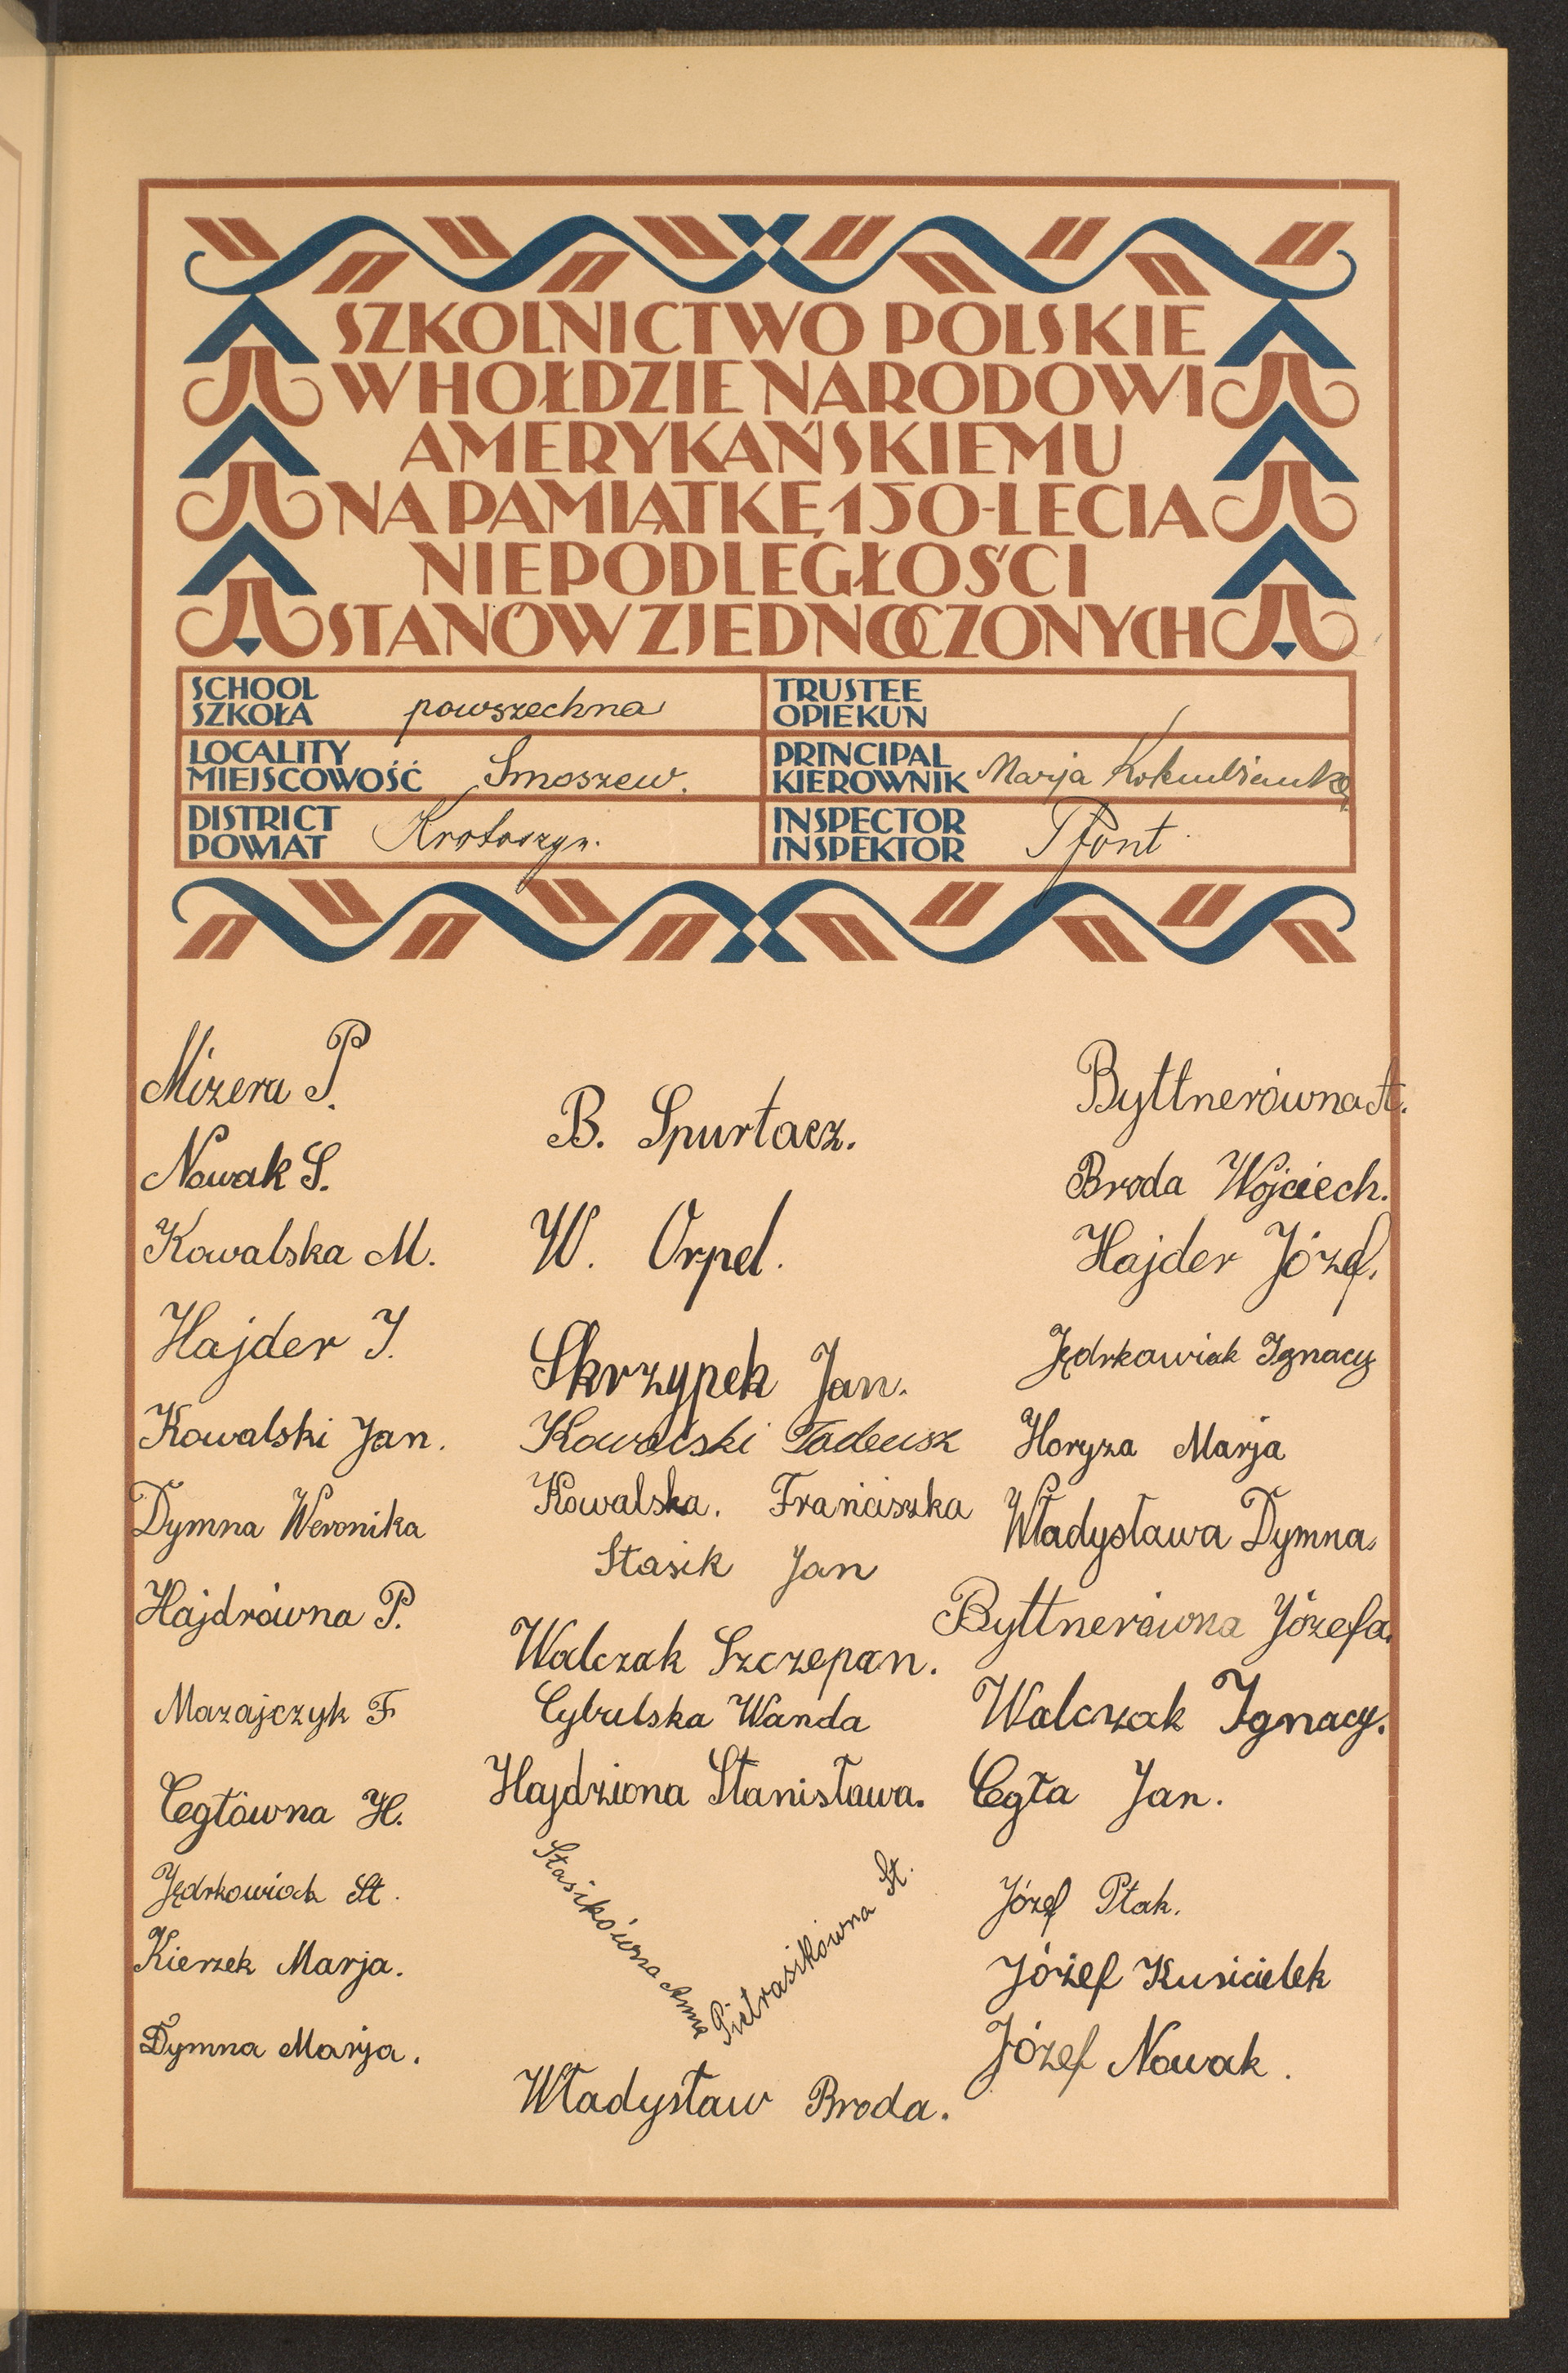 SZKOLNICTWO POLSKIE
W HOŁDZIE NARODOWI
AMERYKAŃSKIEMU
NA PAMIĄTKĘ 150-LECIA
NIEPODLEGŁOŚCI
STANÓW ZJEDNOCZONYCH
SCHOOL
SZKOŁA powszechna
TRUSTEE
OPIEKUN
LOCALITY
MIEJSCOWOŚĆ Smoszew.
PRINCIPAL
KIEROWNIK Marja
DISTRICT
POWIAT Krotoszyn.
INSPECTOR
INSPEKTOR Pfont
Mizera P.
Nowak S.
Kowalska M.
Hajder J.
Kowalski Jan.
Dymna Weronika
Hajdrówna P.
Mazajczyk F
Cegłówna H.
Jędrkowiak St.
Kierzek Marja.
Dymna Marja.
B. Spurtacz.
W. Orpel.
Skrzypek Jan.
Kowalski Tadeusz
Kowalska. Franciszka
Stasik Jan
Walczak Szczepan.
Cybulska Wanda
Hajdziona Stanisława.
Stasikówna Anna
Pietrasikówna St.
Władysław Broda.
Byttnerówna A.
Broda Wojciech.
Hajder Józef.
Jędrkowiak Ignacy
Horyza Marja
Władysława Dymna.
Byttnerówna Józefa.
Walczak Ignacy.
Cegła Jan.
Józef Ptak.
Józef Kusicielek
Józef Nowak.